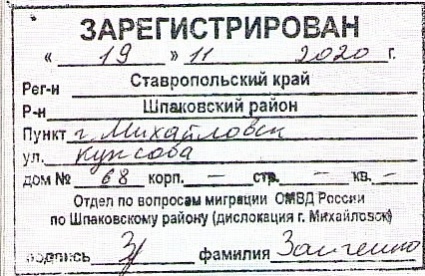 ЗАРЕГИСТРИРОВАН
« 19 » 11 2020 г.
Рег-н Ставропольский край
Р-н Шпаковский район
Пункт г. Михайловск
ул.
дом № 68 корп. — стр. — кв. —
Отдел по вопросам миграции ОМВД России
по Шпаковскому району (дислокация г. Михайловск)
подпись фамилия